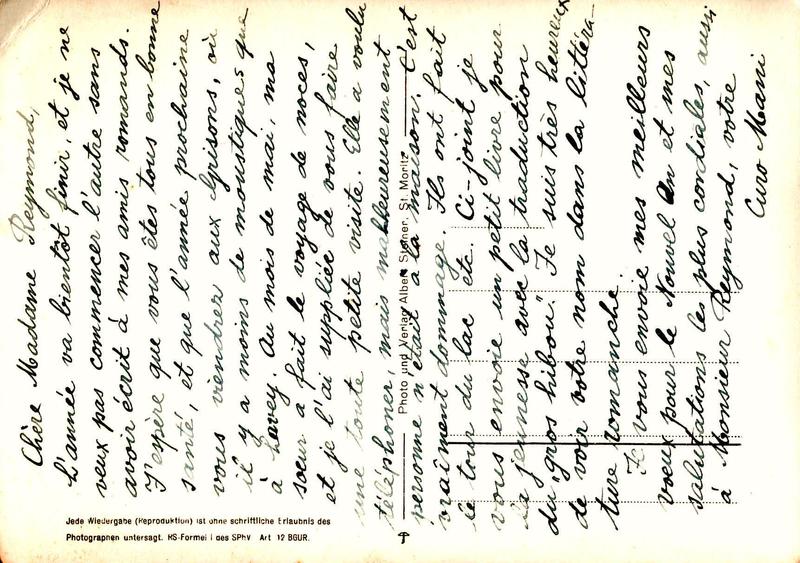 Chère Madame Reymond,
L'année va bientôt finir, et je ne
veux pas commencer l'autre sans
avoir écrit à mes amis romands.
J'espère que vous êtes tous en bonne
santé, et que l'année prochaine
vous viendrez aux Grisons, où
il y a moins de moustiques que
à Lavey. Au mois de mai, ma
sœur a fait le voyage de noces,
et je l'ai suppliée de vous faire
une toute petite visite. Elle a voulu
téléphoner, mais malheureusement
personne n'était à la maison. C'est
vraiment dommage. Ils ont fait
le tour du lac etc. Ci-joint je
vous envoie un petit livre pour
la jeunesse avec la traduction
du "gros hibou". Je suis très heureux
de voir votre nom dans la littéra-
ture romanche.
Je vous envoie mes meilleurs
vœux pour le Nouvel An et mes
salutations les plus cordiales, aussi
à Monsieur Reymond, votre
Curo Mani
Photo und Verlag Albert Steiner, St. Moritz
Jede Wiedergabe (Reproduktion) ist ohne schriftliche Erlaubnis des
Photographen untersagt. RS-Formel I des SPhV Art 12 BGUR.